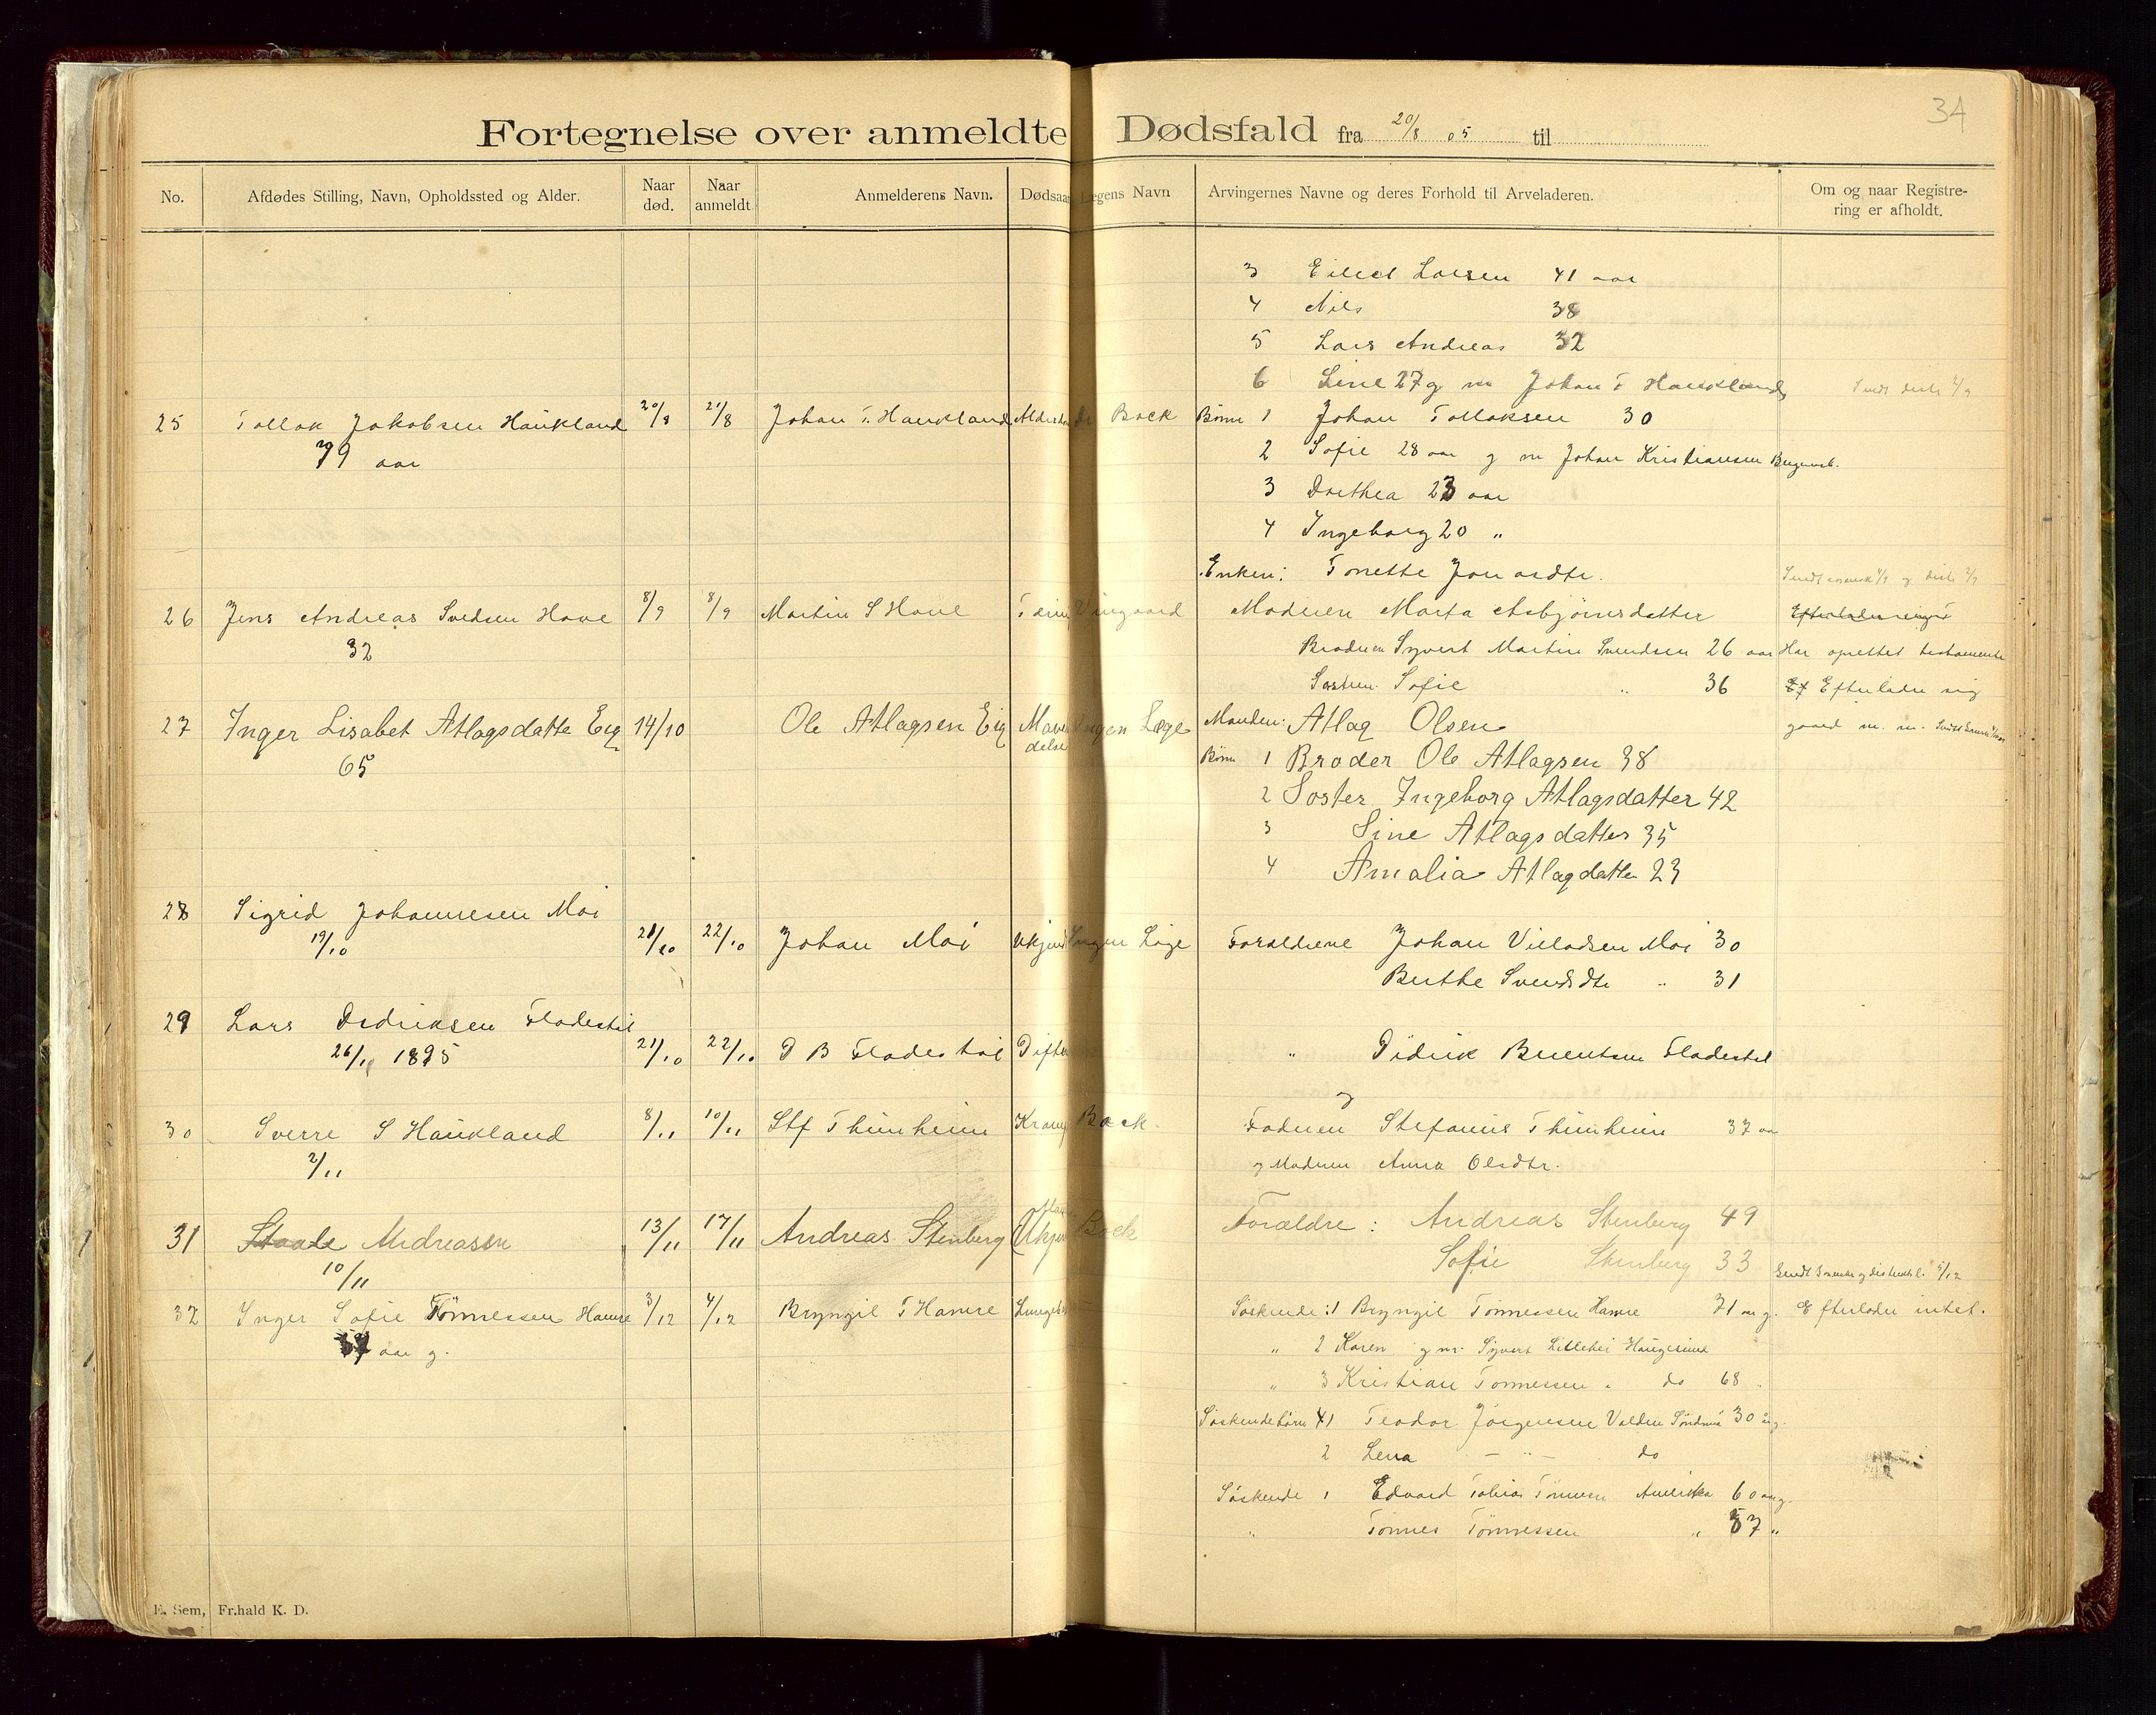 34
Fortegnelse over anmeldte Dødsfald fra 20/8 05 til
No. Afdødes Stilling, Navn, Opholdssted og Alder. Naar død. Naar anmeldt Anmelderens Navn. Dødsaar Lægens Navn Arvingernes Navne og deres Forhold til Arveladeren. Om og naar Registrering er afholdt.
3 Eilert Larsen 41 aar
4 Nils 38
5 Lars Andreas 32
6 Line 27 g m Johan T Haukland
25 Tollak Jakobsen Haukland 20/8 21/8 Johan T. Haukland Bock Børn 1 Johan Tollaksen 30
79 aar 2 Sofie 28 aar g m Johan Kristiansen
3 Dorthea 23 aar
4 Ingeborg 20 "
Enken: Tonette
26 Jens Andreas Svedsen Hove 8/9 8/9 Martin S Hove Moderen Marta Asbjørnsdatter
32 Broderen Syvert Martin Svendsen 26 aar Har oprettet testamente
Søsteren Sofie " 36 Efterlader sig
27 Inger Lisabet Atlagsdatte Eig 14/10 Ole Atlagsen Eig Ingen Læge Manden: Atlag Olsen gaard m. m.
65 Børn 1 Broder Ole Atlagsen 38
2 Søster Ingeborg Atlagsdatter 42
3 Sine Atlagsdatter 35
4 Amalia Atlagdatter 23
28 Sigrid Johannesen Moi
19/10 21/10 22/10 Johan Moi Ukjend Ingen Læge Forældrene Johan Villadsen Moi 30
Berthe Svendsdtr " 31
29 Lars Dedriksen Fladestøl
1895 21/10 22/10 D B Fladestøl Difte " Didrik Berentsen Fladestøl
og
30 Sverre S Haukland 8/11 10/11 Stf Thimheim Kramp Bock. Faderen Stefanus Thimheim 37 aar
2/11 og Moderen Anna Olsdtr.
31 Staale Andreasen 13/11 17/11 Andreas Stenberg Ukjen Bock Forældre: Andreas Stenberg 49
10/11 Sofie Stenberg 33
32 Inger Sofie Tønnessen Hamre 3/12 4/12 Bryngil T Hamre Lungeb Søskende: 1 Bryngil Tønnessen Hamre 71 aar g. Efterlader intet.
aar g. " 2 Karen g m. Syvert
" 3 Kristian Tønnessen " do 68
Søskendebørn 41 Teodor Jørgensen 30
2 Lena — " — do
Søskende 1 Edvard Tobias Tønnesen Amerika 60 aar g.
" Tønnes Tønnessen " 57 "
E. Sem, Fr.hald K. D.